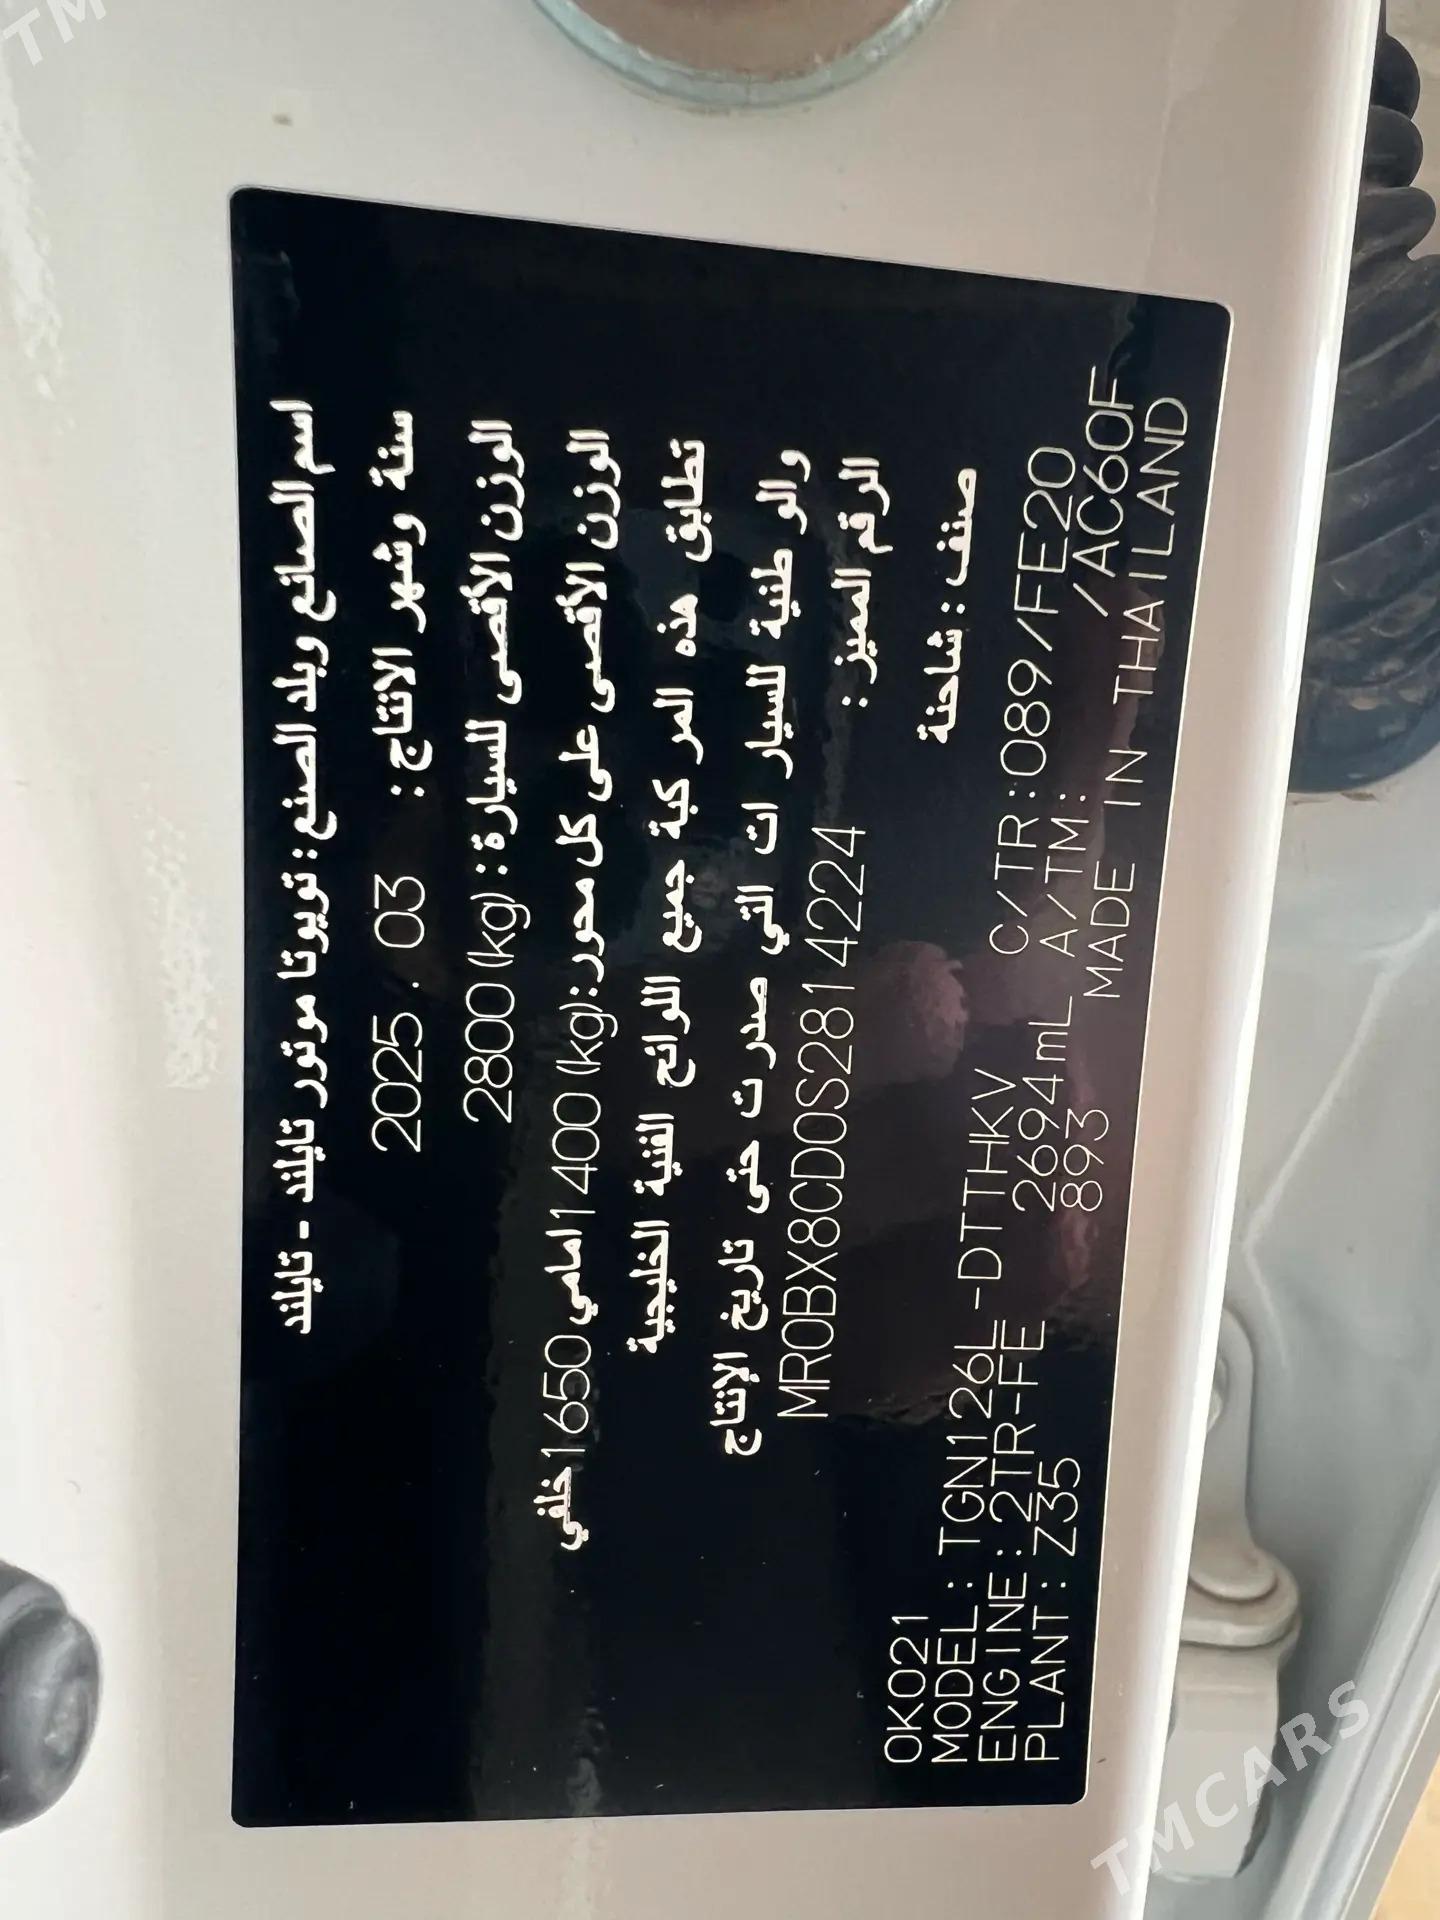 اسم الصانع وبلد الصنع : تويوتا موتور تايلند - تايلند
سنة وشهر الانتاج : 2025 . 03
الوزن الأقصى للسيارة : 2800 (kg)
الوزن الأقصى على كل محور : 1400 (kg) امامي 1650 خلفي
تطابق هذه المركبة جميع اللوائح الفنية الخليجية
والوطنية للسيارات التي صدرت حتى تاريخ الإنتاج
الرقم المميز : MR0BX8CD0S2814224
صنف : شاحنة
0K021
MODEL : TGN126L-DTTHKV C/TR : 089/FE20
ENGINE : 2TR-FE 2694 mL A/TM : /AC60F
PLANT : Z35 893 MADE IN THAILAND
TMCARS
TM